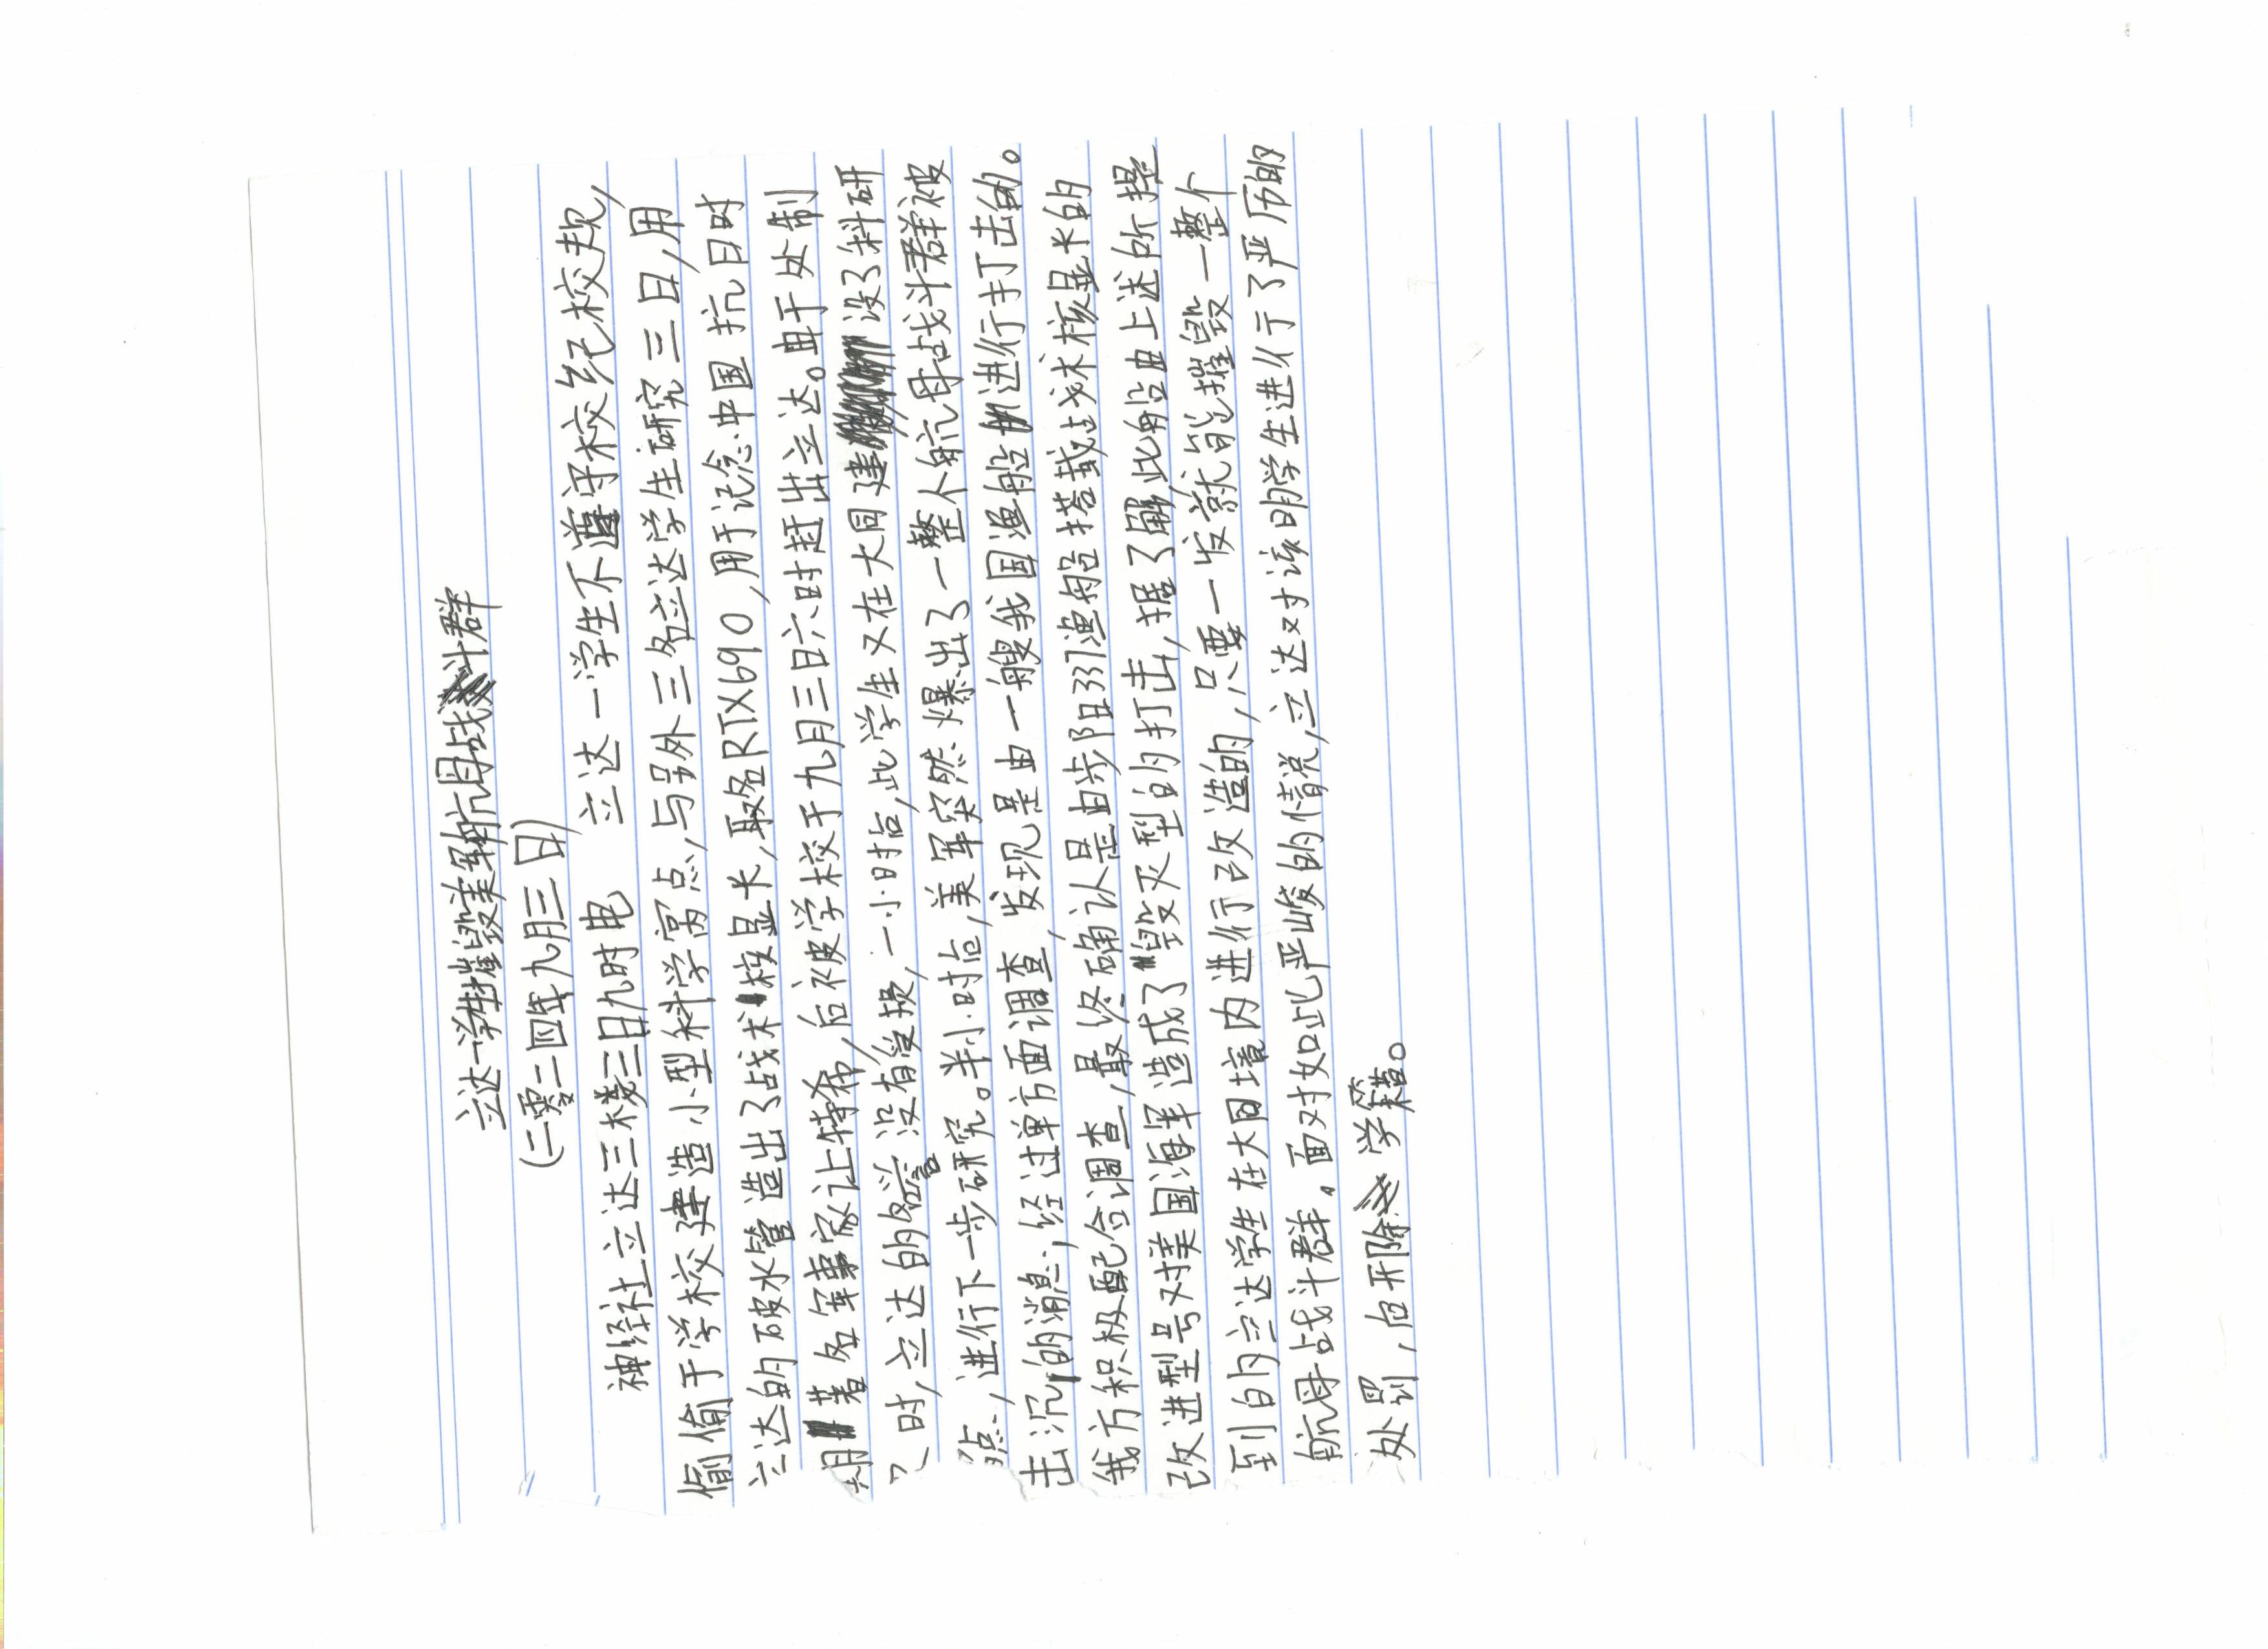 立达一学生摧毁美军航母战斗群
(二零二四年九月三日)
神经社立达三楼三日九时电 立达一学生不遵守校纪校规,
偷偷于学校建造小型科学窝点,与另外三名立达学生研究三日,用
立达的破水管造出了战术核显卡,取名RTX6090,用于记念中国抗日时
期著名军事家让上特希,后被学校于九月三日六时赶出立达。由于处制
之时,立达的名誉没有受损,一小时后,此学生又在大同建设了科研
点,进行下一步研究。半小时后,美军突然爆出了一整个航母战斗群被
击沉的消息,经过单方面调查,发现是由一艘我国渔船进行打击的。
我方积极配合调查,最终确认是由步阳337渔船搭载战术核显卡的
改进型号对美国海军造成了毁灭型的打击,据了解此舟宫由上述所提
到的立达学生在大同境内进行改造的,只要一发就能摧毁一整个
航母战斗群。面对如此严峻的情况,立达对该明学生进行了严厉的
处罚,包开除学籍。